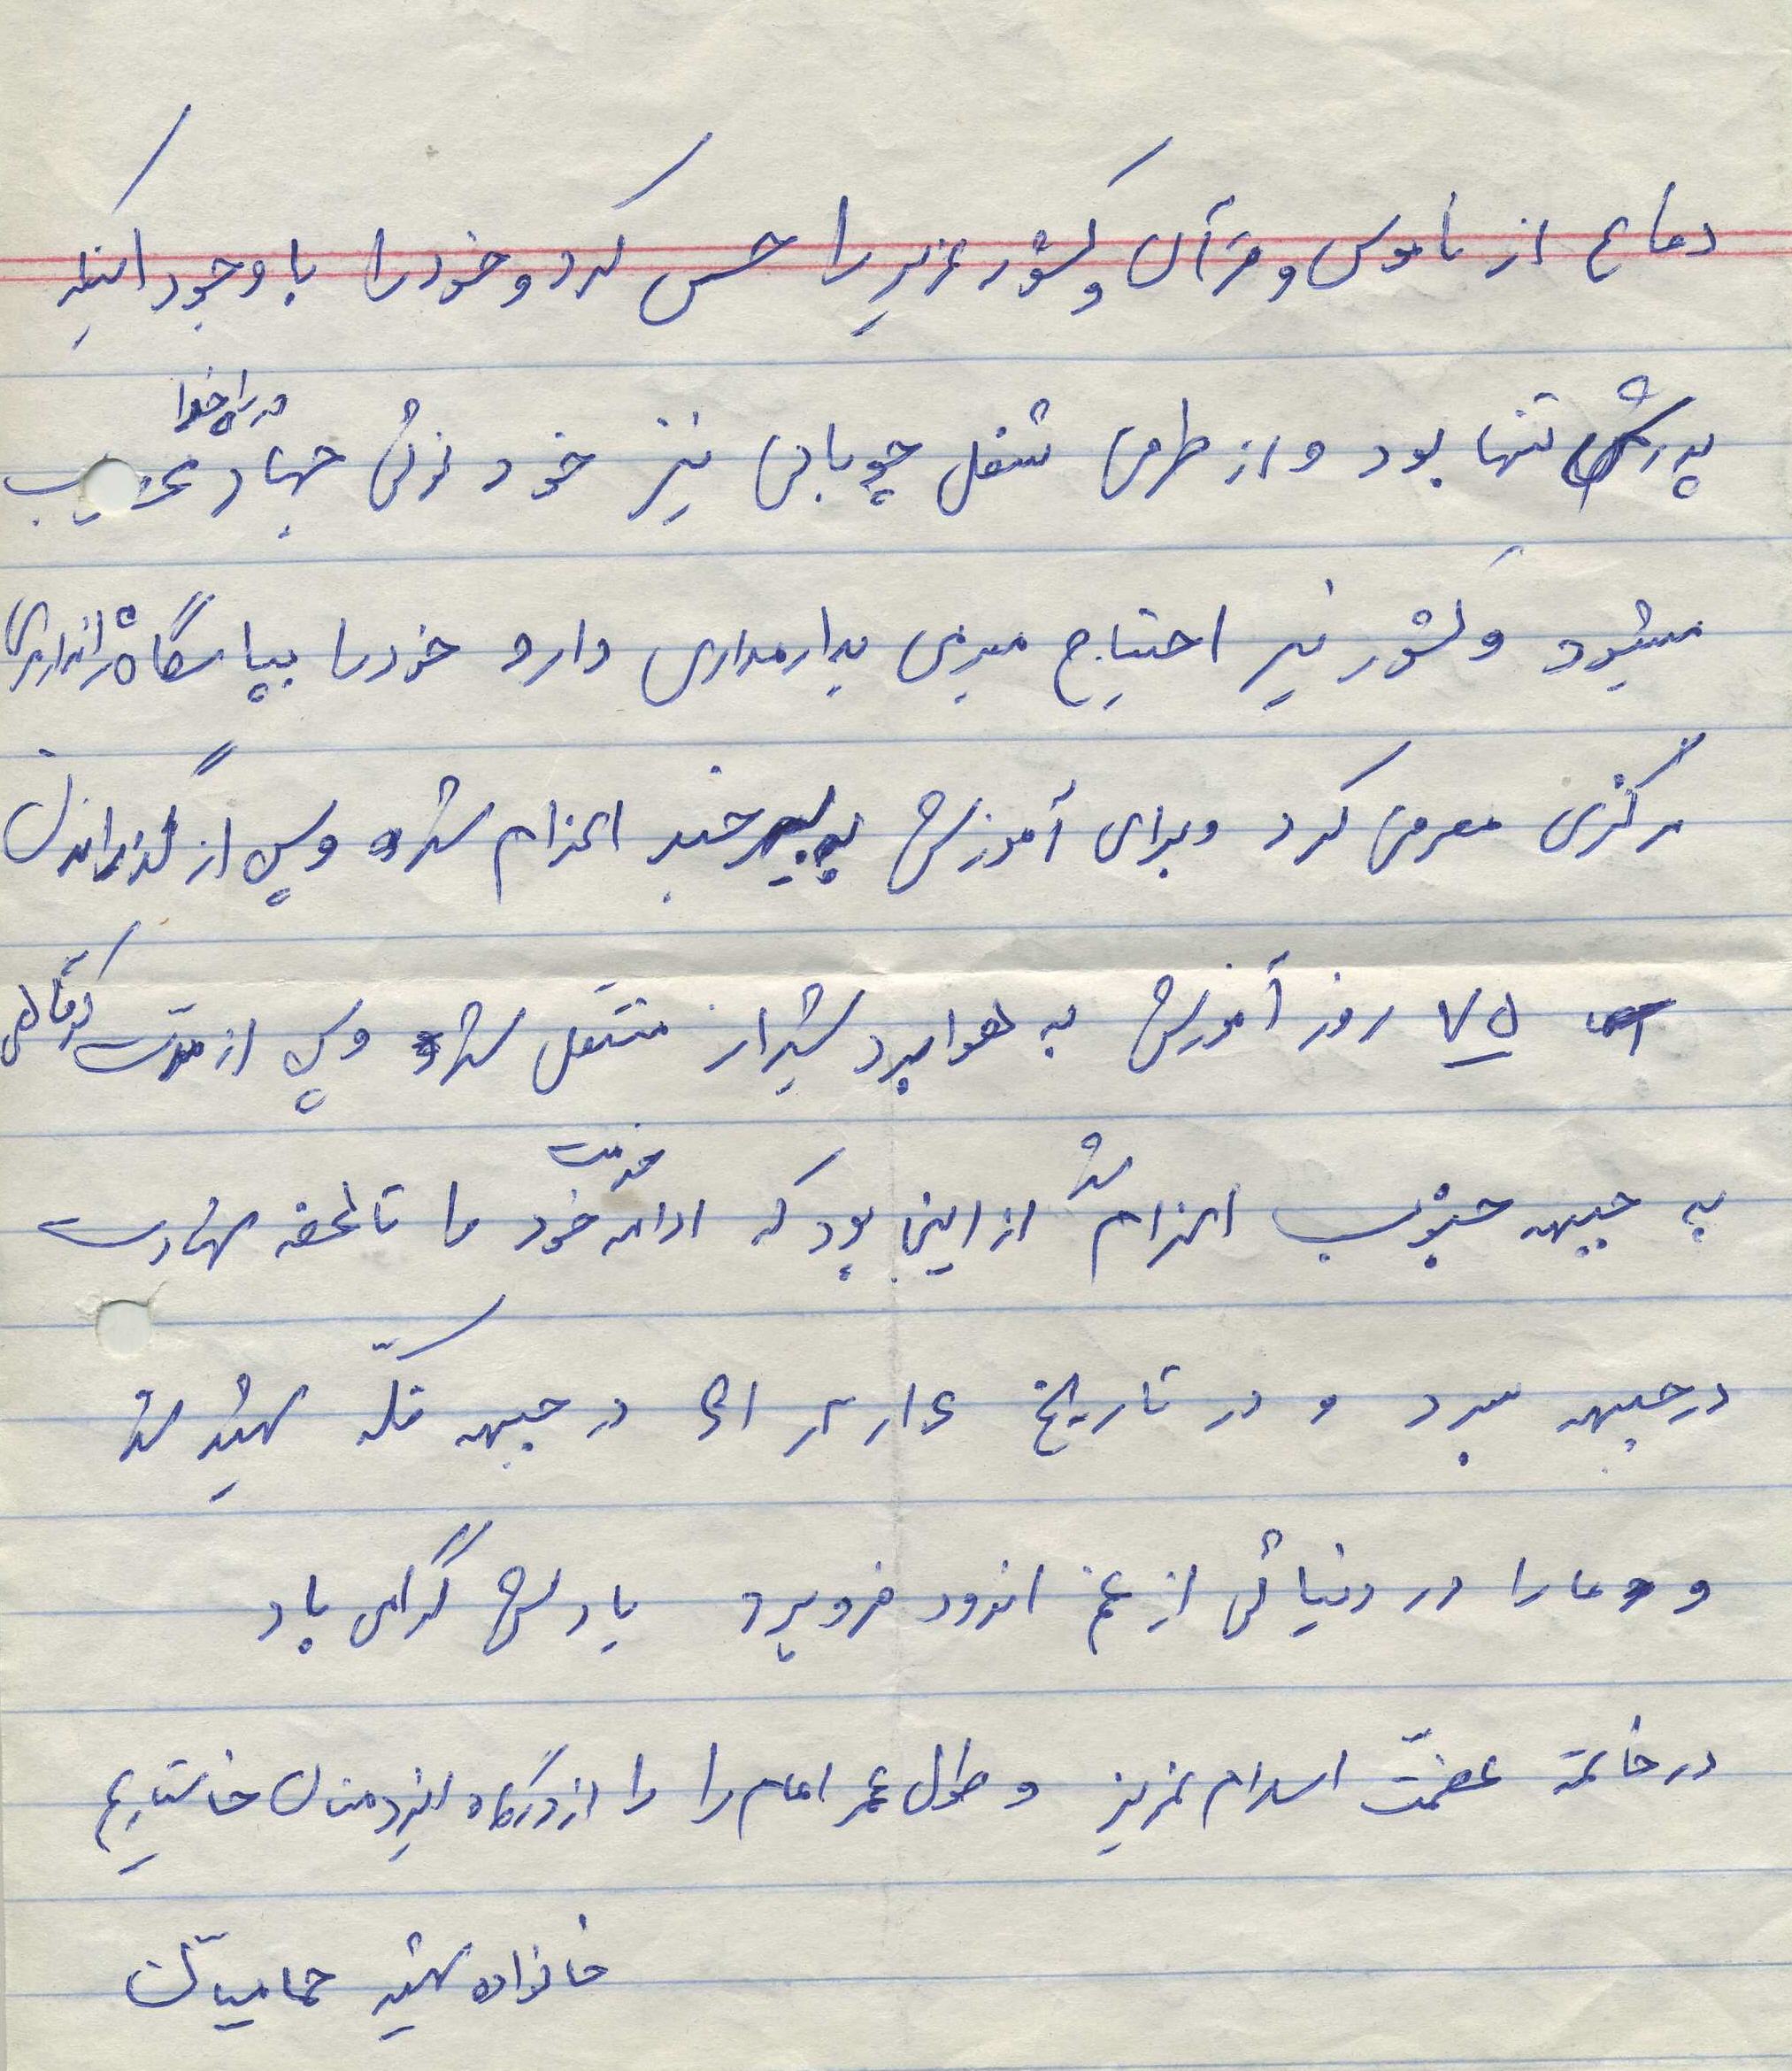 دفاع از ناموس و قرآن و کشور عزیز را حس کرد و خود را با وجود اینکه
پدرش تنها بود و از طرفی شغل چوپانی نیز خود نوعی جهاد در راه خدا محسوب
میشود و کشور نیز احتیاج مبرمی به ارمداری دارد خود را بپاسگاه ژاندارمری
مرکزی معرفی کرد و برای آموزش به بیرجند اعزام شد و پس از گذراندن
۷۵ روز آموزش به هوابرد شیراز منتقل شد و پس از مدت کوتاهی
به جبهه جنوب اعزام شد از اینجا بود که ادامه خدمت خود را تا لحظه شهادت
در جبهه سپرد و در تاریخ در جبهه فکّه شهید شد
و ما را در دنیائی از غم اندوه فرو برد یادش گرامی باد
در خاتمه عضمّت اسلام عزیز و طول عمر امام را را از درگاه ایزد منان خاستاریم
خانواده شهید